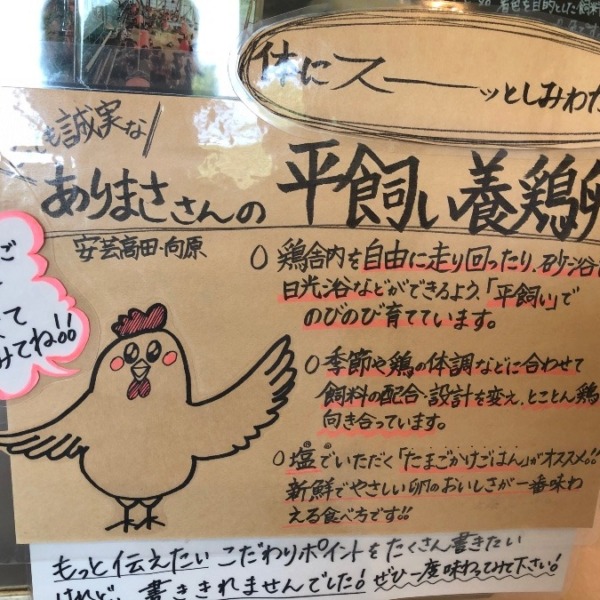 着色を目的とした飼料
体にスーーッとしみわた
も誠実な
ありまささんの 平飼い養鶏卵
安芸高田・向原
ご
て
みてね!!
○ 鶏舎内を自由に走り回ったり、砂浴
日光浴などができるよう、「平飼い」で
のびのび育てています。
○ 季節や鶏の体調などに合わせて
飼料の配合・設計を変え、とことん鶏
向き合っています。
○ 塩でいただく「たまごかけごはん」がオススメ!!
新鮮でやさしい卵のおいしさが一番味わ
える食べ方です!!
もっと伝えたいこだわりポイントをたくさん書きたい
けれど、書ききれませんでした!ぜひ一度味わってみて下さい!